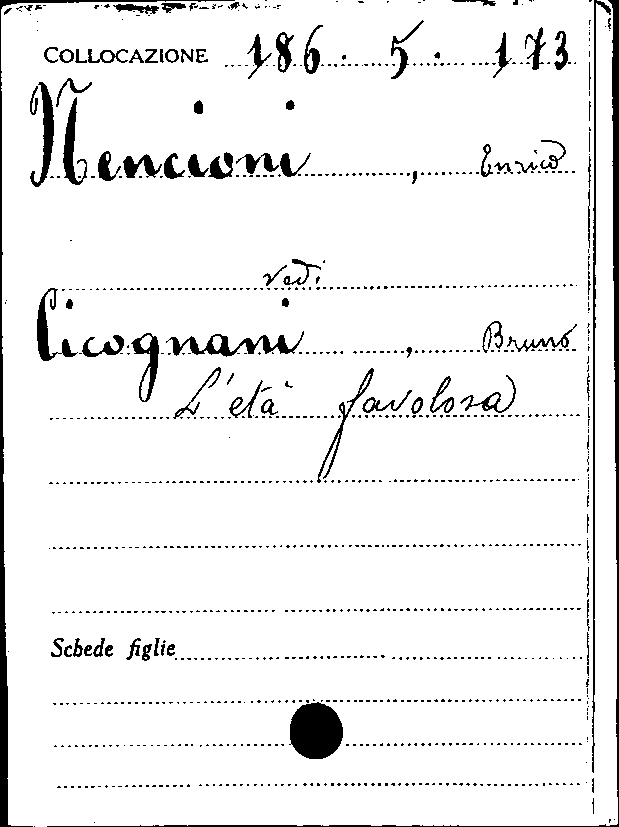 COLLOCAZIONE 186. 5. 173
Nencioni, Enrico
vedi
Cicognani, Bruno
L'età favolosa
Schede figlie